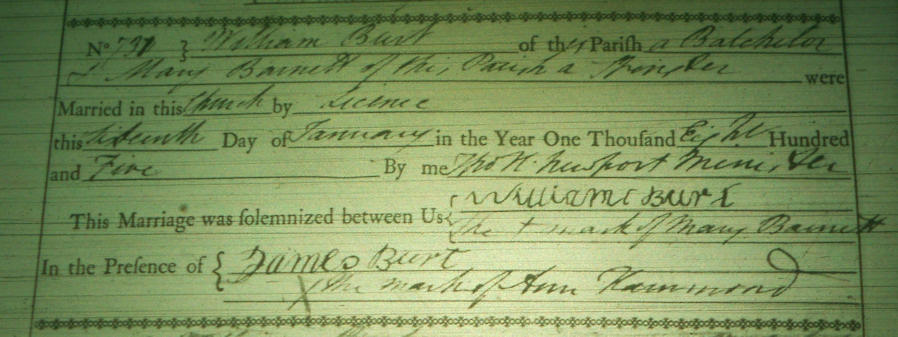 No 731 } William Burt of this Parish a Batchelor
& Mary Barnett of this Parish a Spinster were
Married in this Church by Licence
this Day of January in the Year One Thousand Eight Hundred
and Five By me Thos K. Newport Minister
This Marriage was solemnized between Us { William Burt
The + mark of Mary Barnett
In the Presence of { James Burt
X the mark of Ann Hammond